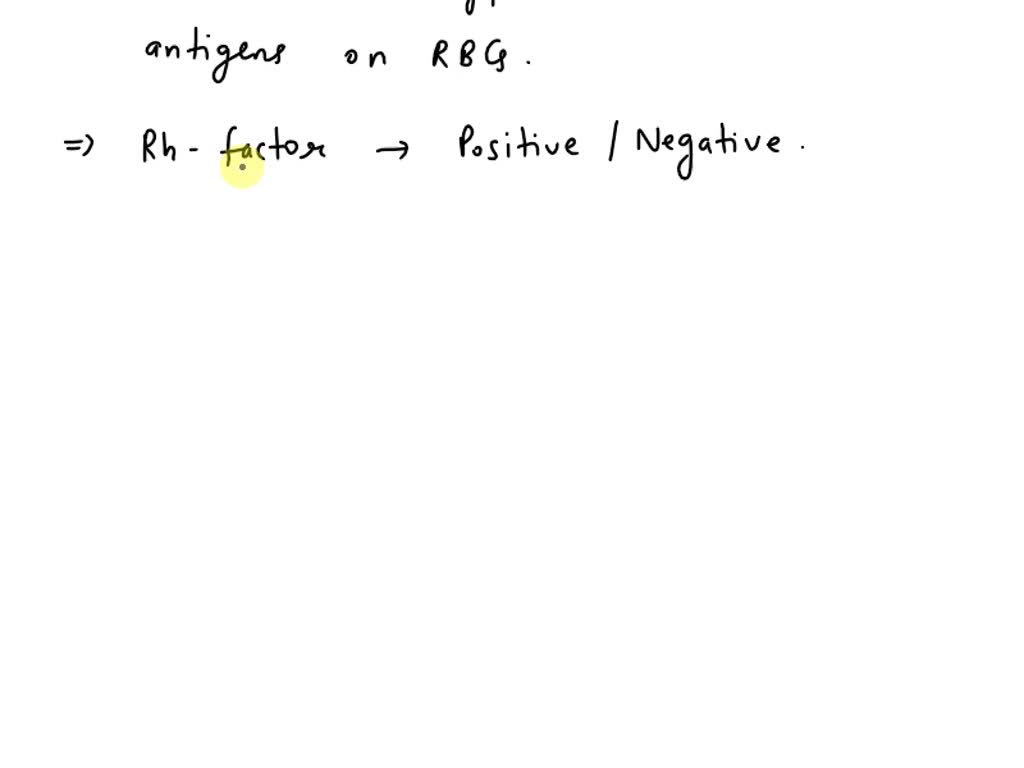 antigens on RBCs.
⇒ Rh-factor → Positive / Negative.